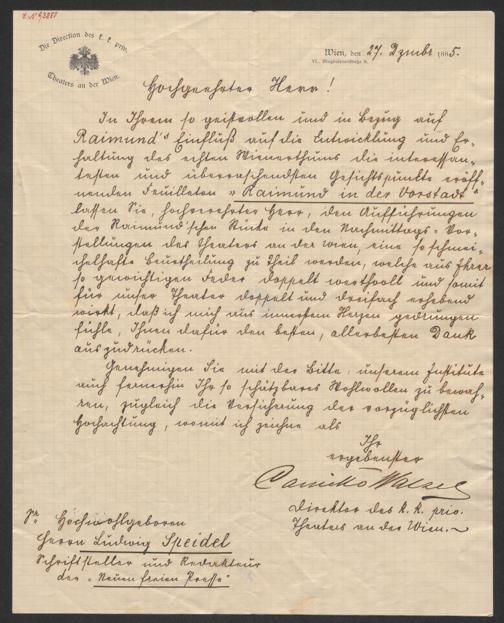 Die Direction des k. k. priv.
Theaters an der Wien.
Wien, den 27. Dzmbr 1885.
VI., Magdalenenstraße 8.
Hochgeehrter Herr!
In Ihrem so geistvollen und in Bezug auf
Raimund's Einfluß auf die Entwicklung und Er-
haltung des echten Wienerthums die interessan-
testen und überraschendsten Gesichtspunkte eröff-
nenden Feuilleton „Raimund in der Vorstadt"
lassen Sie, hochverehrter Herr, den Aufführungen
der Raimund'schen Stücke in den Nachmittags-Vor-
stellungen des Theaters an der Wien, eine so schmei-
chelhafte Beurtheilung zu Theil werden, welche aus Ihrer
so gewichtigen Feder doppelt werthvoll und somit
für unser Theater doppelt und dreifach erhebend
wirkt, daß ich mich aus innerstem Herzen gedrungen
fühle, Ihnen dafür den besten, allerbesten Dank
auszudrücken.
Genehmigen Sie mit der Bitte, unserem Institute
auch fernerhin Ihr so schätzbares Wohlwollen zu bewah-
ren, zugleich die Versicherung der vorzüglichsten
Hochachtung, womit ich zeichne als
Ihr
ergebenster
Camillo Walzel
Direktor des k. k. priv.
Theaters an der Wien.
Sr Hochwohlgeboren
Herrn Ludwig Speidel
Schriftsteller und Redakteur
der „Neuen freien Presse"